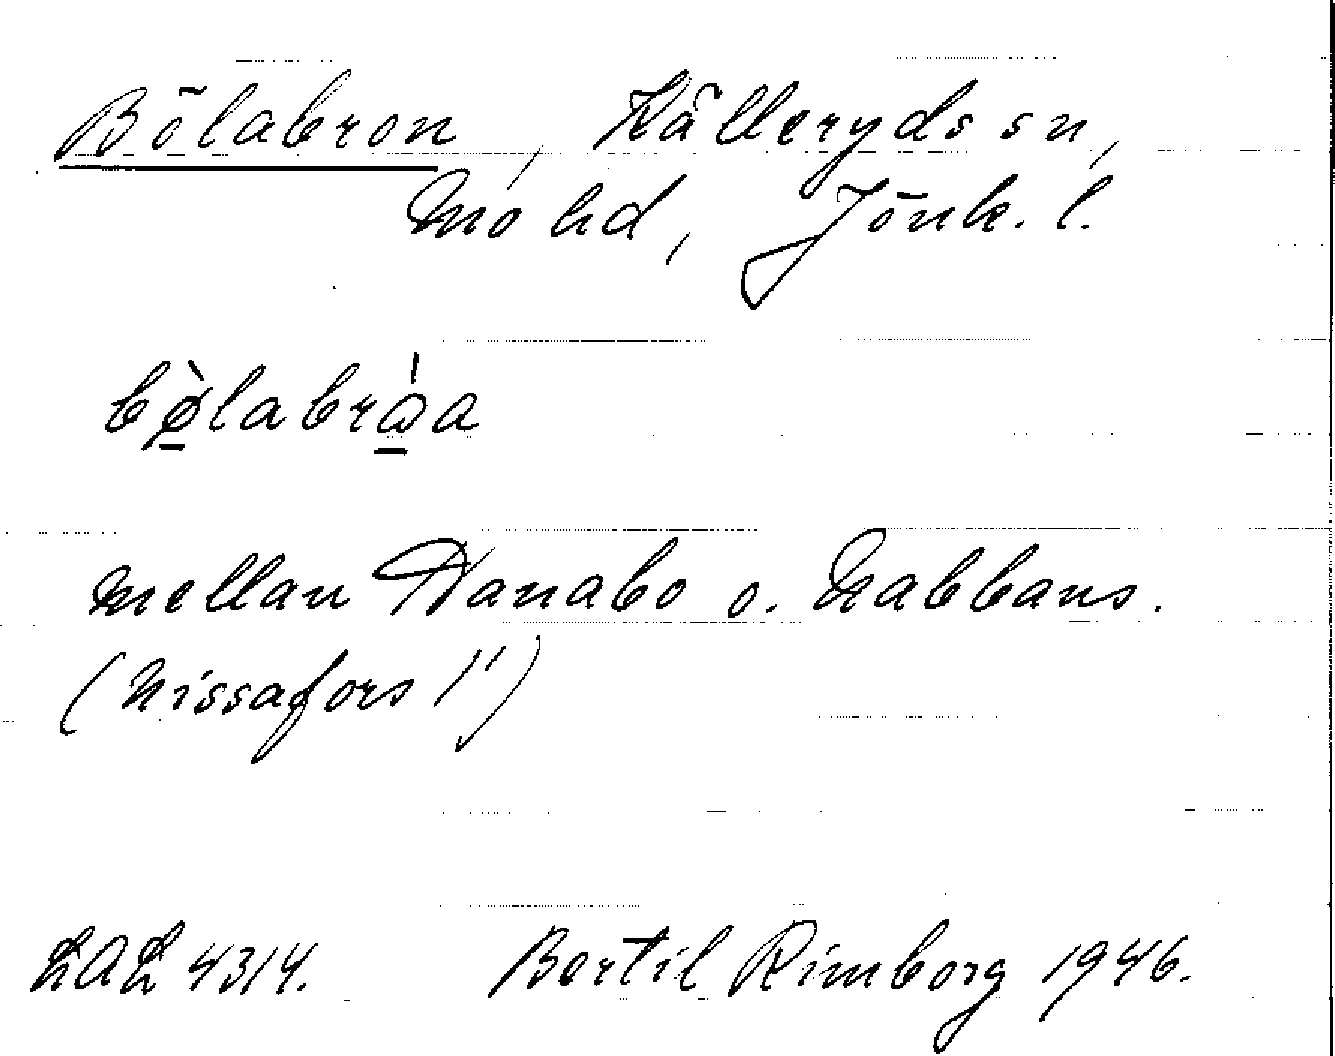 Bölabron, Källeryds sn,
Mo hd, Jönk. l.
bø̀labrω̍a
mellan Danabo o. Nabbans.
(Nissafors 1")
LAL 4314. Bertil Rimborg 1946.